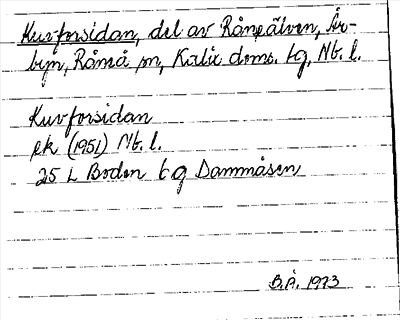 Kuvforsidan, del av Råneälven, År-
byn, Råneå sn, Kalix doms. tg, Nb. l.
Kuvforsidan
ek (1951) Nb. l.
25 L Boden tg Dammåsen
B.Å. 1973